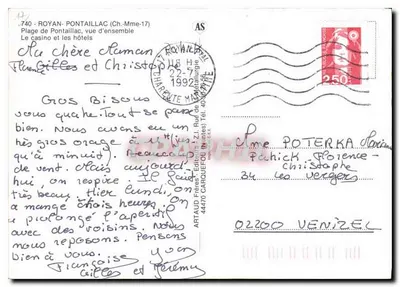 .740 - ROYAN- PONTAILLAC (Ch.-Mme-17)
Plage de Pontaillac, vue d'ensemble
Le casino et les hôtels
AS
Ma chère Maman
Gilles et Christophe
Gros Bisous à
vous quatre. Tout se passe
bien. Nous avons eu un
très gros orage
qu'à minuit). Beaucoup
de vent. Mais aujourd'
hui, on respire. Il fait
très beau. Hier lundi, on
a mangé chois heures. On
a prolongé l'apéritif
avec des voisins. Nous
nous reposons. Pensons
bien à vous. Yvon
Françoise
Gilles et Jérémy
17 ROYAN
18 H
22-7
1992
CHARENTE MARITIME
2,50
44470 CARQUEFOU
Mme POTERKA
Patrick Florence
Christophe
34 les vergers
02200 VENIZEL